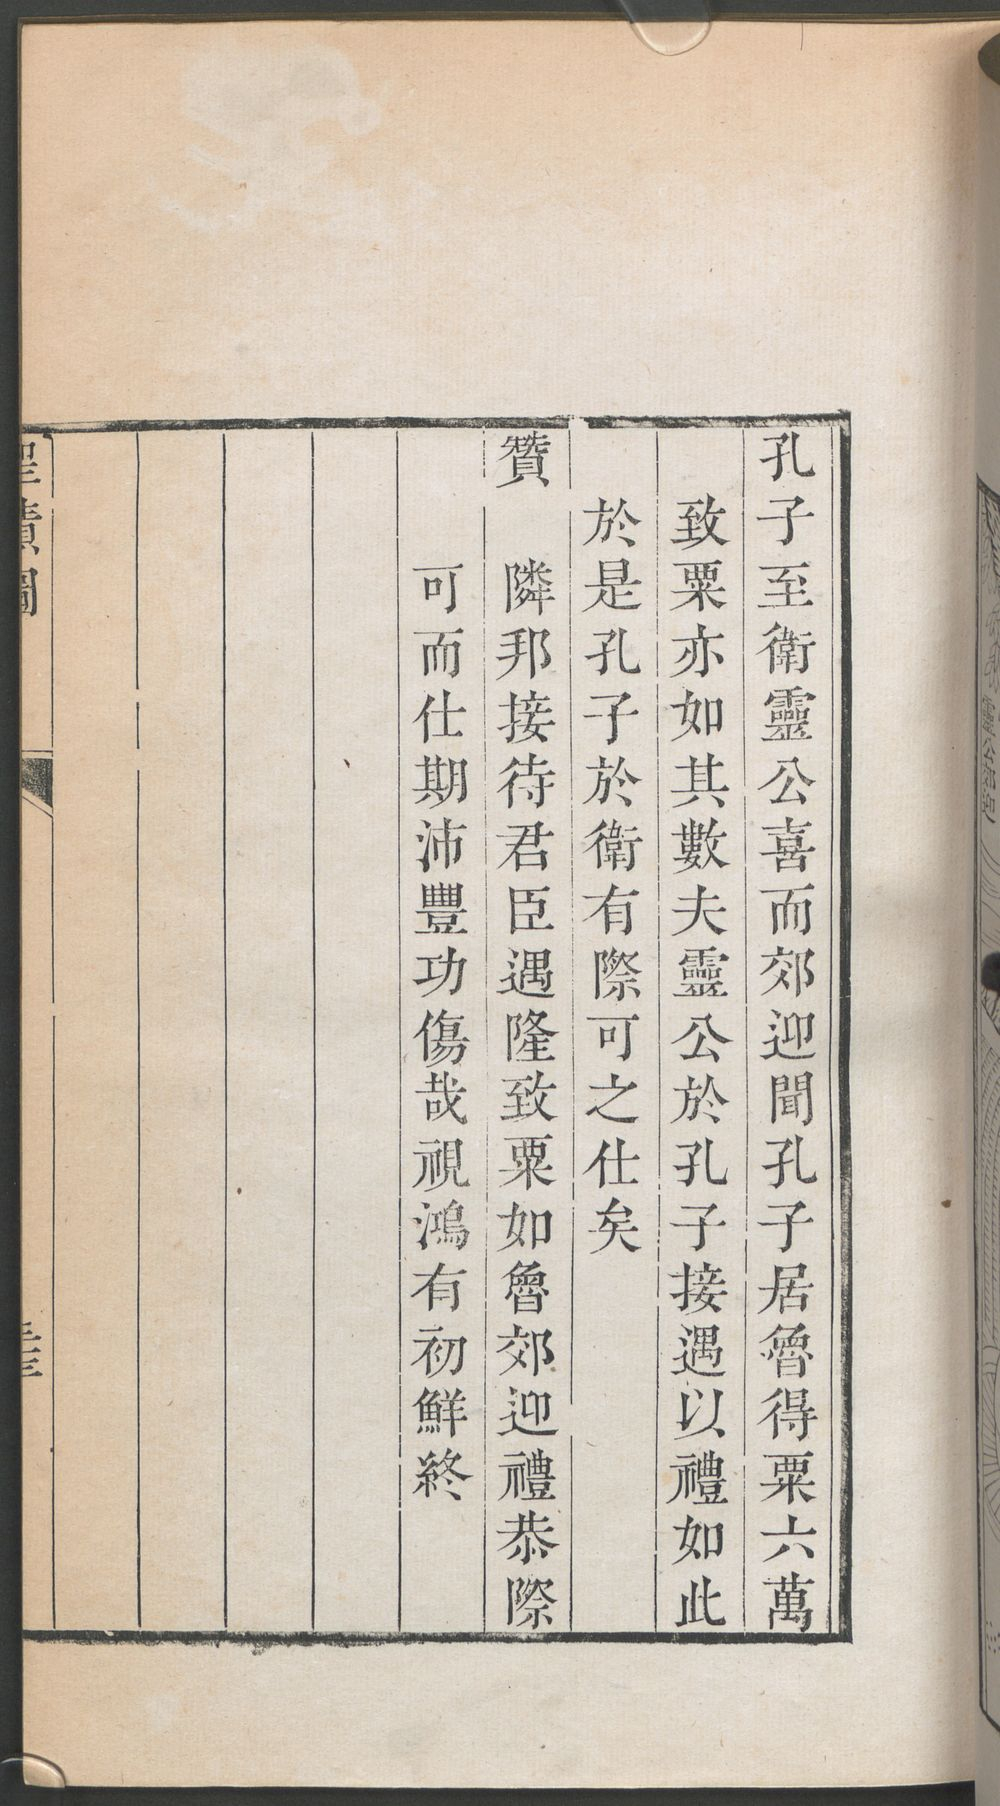 孔子至衛靈公喜而郊迎聞孔子居魯得粟六萬
致粟亦如其數夫靈公於孔子接遇以禮如此
於是孔子於衛有際可之仕矣
贊　隣邦接待君臣遇隆致粟如魯郊迎禮恭際
可而仕期沛豐功傷哉視鴻有初鮮終
聖蹟圖
靈公郊迎